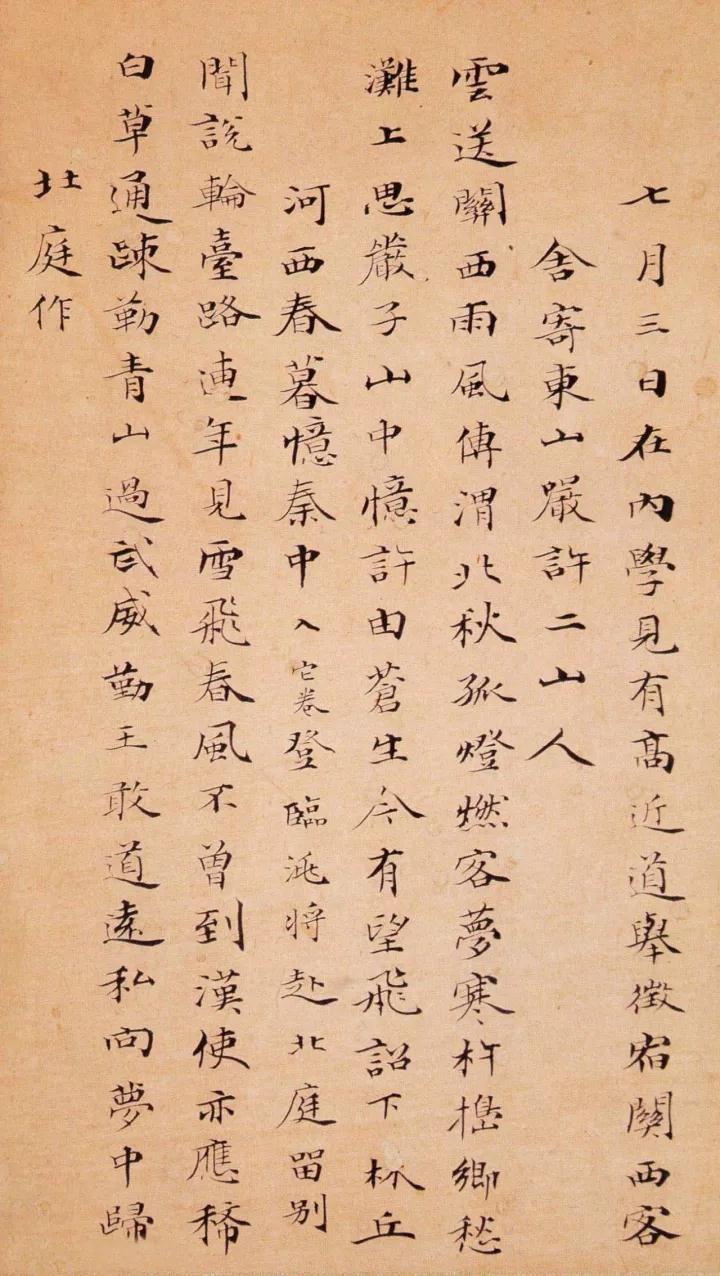 七月三日在內學見有高近道舉徵宿關西客
舍寄東山嚴許二山人
雲送關西雨風傳渭北秋孤燈燃客夢寒杵搗鄉愁
灘上思嚴子山中憶許由蒼生今有望飛詔下林丘
河西春暮憶秦中入它卷登臨洮將赴北庭留别
聞說輪臺路連年見雪飛春風不曾到漢使亦應稀
白草通踈勒青山過武威勤王敢道遠私向夢中歸
北庭作